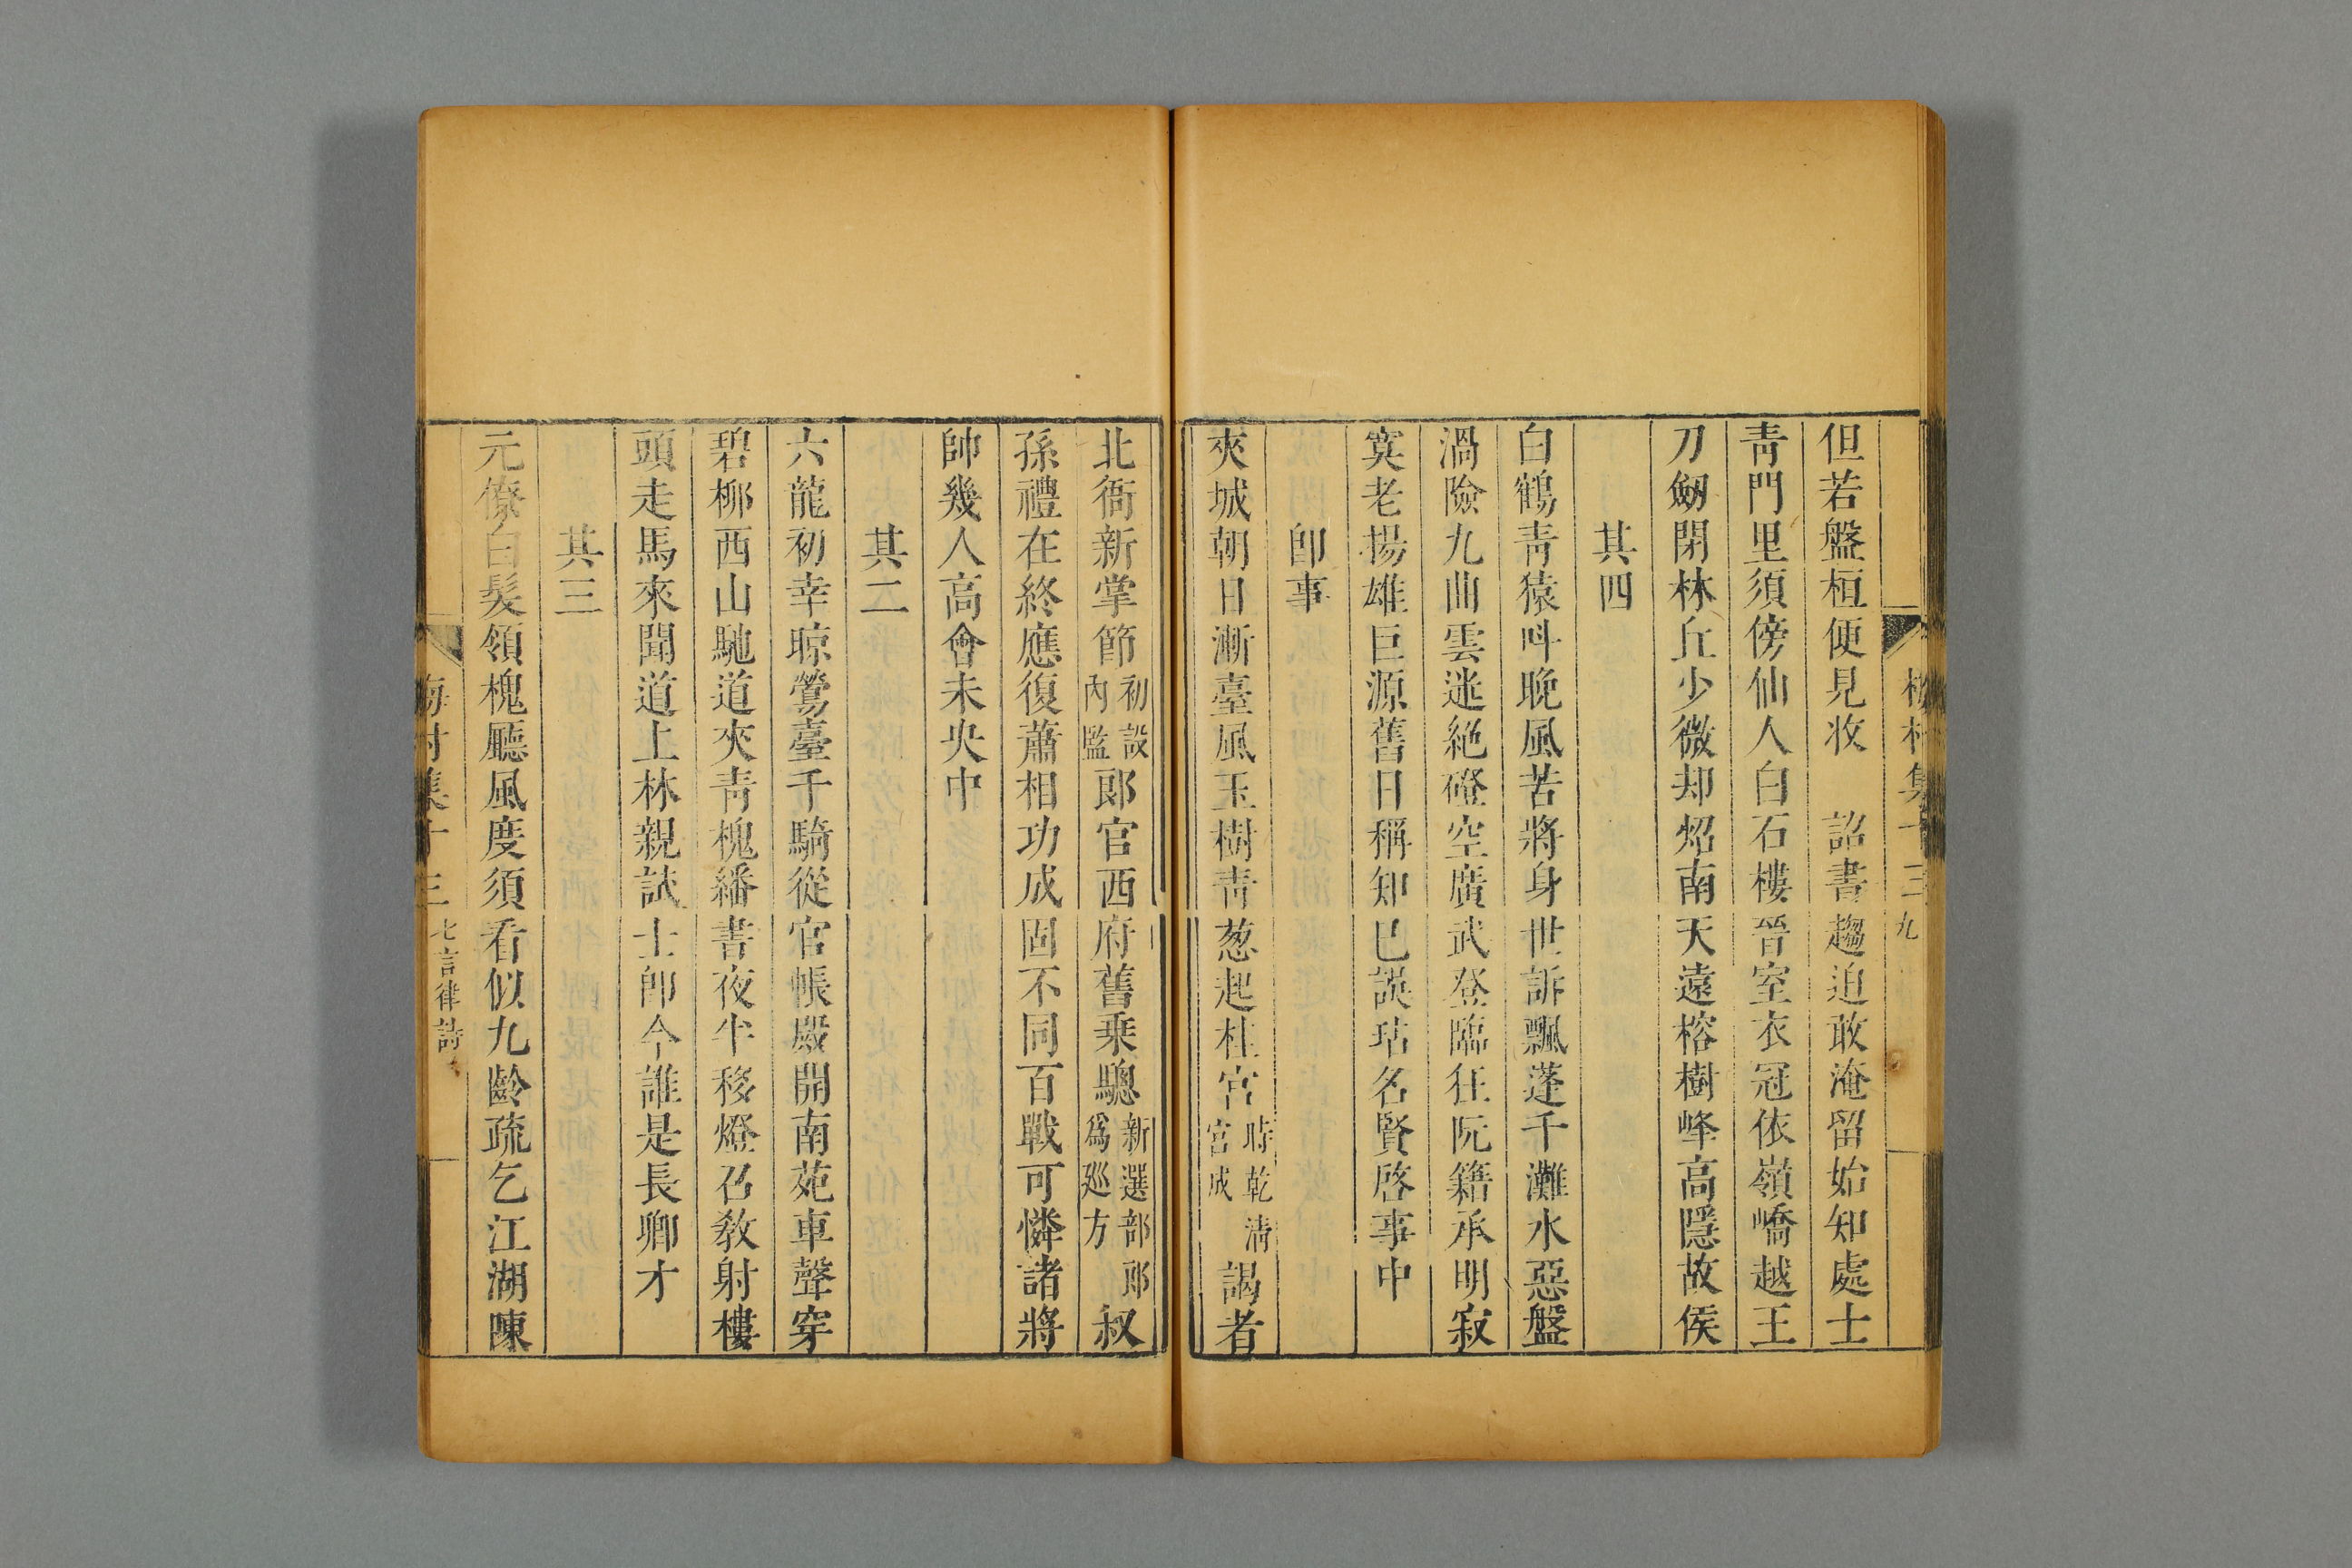 梅村集十三 九
但若盤桓便見收 詔書趨迫敢淹留始知處士
靑門里須傍仙人白石樓晉室衣冠依嶺嶠越王
刀劒閉林丘少微却炤南天遠榕樹峰高隱故侯
其四
白鶴靑猿呌晚風苦將身世訴飄蓬千灘水惡盤
渦險九曲雲迷絕磴空廣武登臨狂阮籍承明寂
寞老揚雄巨源舊日稱知已誤玷名賢啓事中
卽事
夾城朝日漸臺風玉樹靑葱起桂宮時乾淸宮成謁者
北衙新掌節初設內監郞官西府舊乘驄新選部郞爲廵方叔
孫禮在終應復蕭相功成固不同百戰可憐諸將
帥幾人高會未央中
其二
六龍初幸晾鶯臺千騎從官帳殿開南苑車聲穿
碧柳西山馳道夾靑槐繙書夜半移燈召敎射樓
頭走馬來聞道上林親試士卽今誰是長卿才
其三
元僚白髮領槐廳風度須看似九齡疏乞江湖陳
梅村集十三 七言律詩